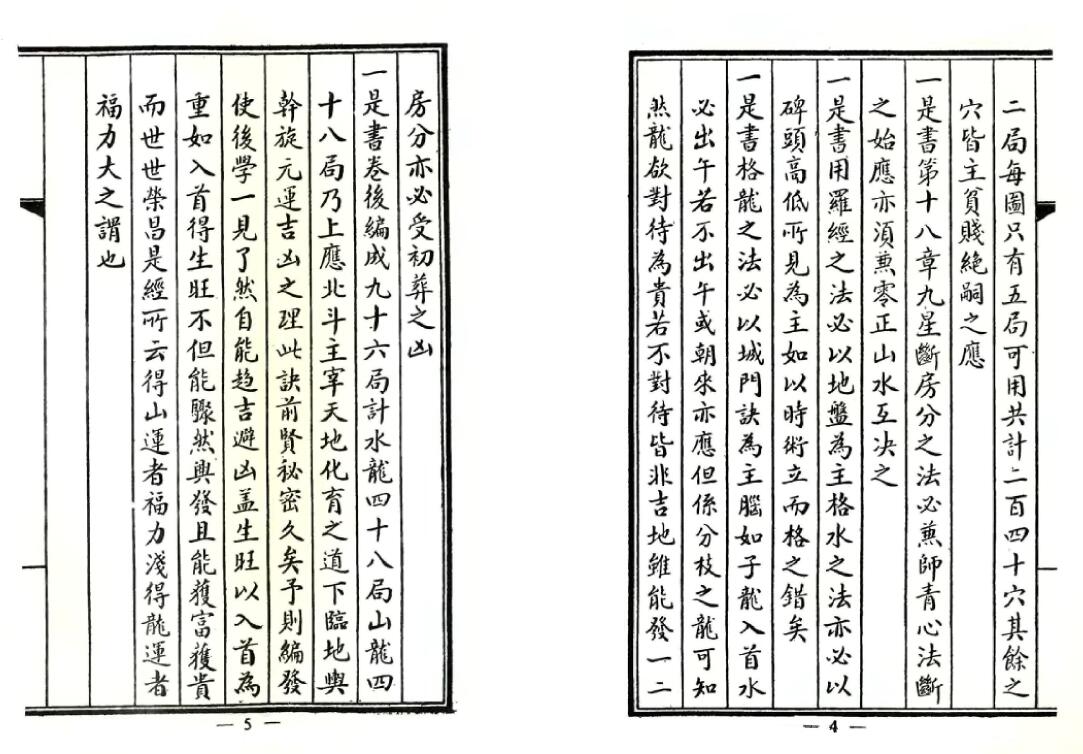 二局每圖只有五局可用共計二百四十穴其餘之
穴皆主貧賤絶嗣之應
一是書第十八章九星斷房分之法必兼師青心法斷
之始應亦須兼零正山水互决之
一是書用羅經之法必以地盤為主格水之法亦必以
碑頭高低所見為主如以時術立而格之錯矣
一是書格龍之法必以城門訣為主腦如子龍入首水
必出午若不出午或朝來亦應但係分枝之龍可知
然龍欲對待為貴若不對待皆非吉地雖能發一二
— 4 —
房分亦必受初葬之凶
一是書卷後編成九十六局計水龍四十八局山龍四
十八局乃上應北斗主宰天地化育之道下臨地輿
幹旋元運吉凶之理此訣前賢秘密久矣予則編發
使後學一見了然自能趋吉避凶盖生旺以入首為
重如入首得生旺不但能驟然興發且能獲富獲貴
而世世榮昌是經所云得山運者福力淺得龍運者
福力大之謂也
— 5 —